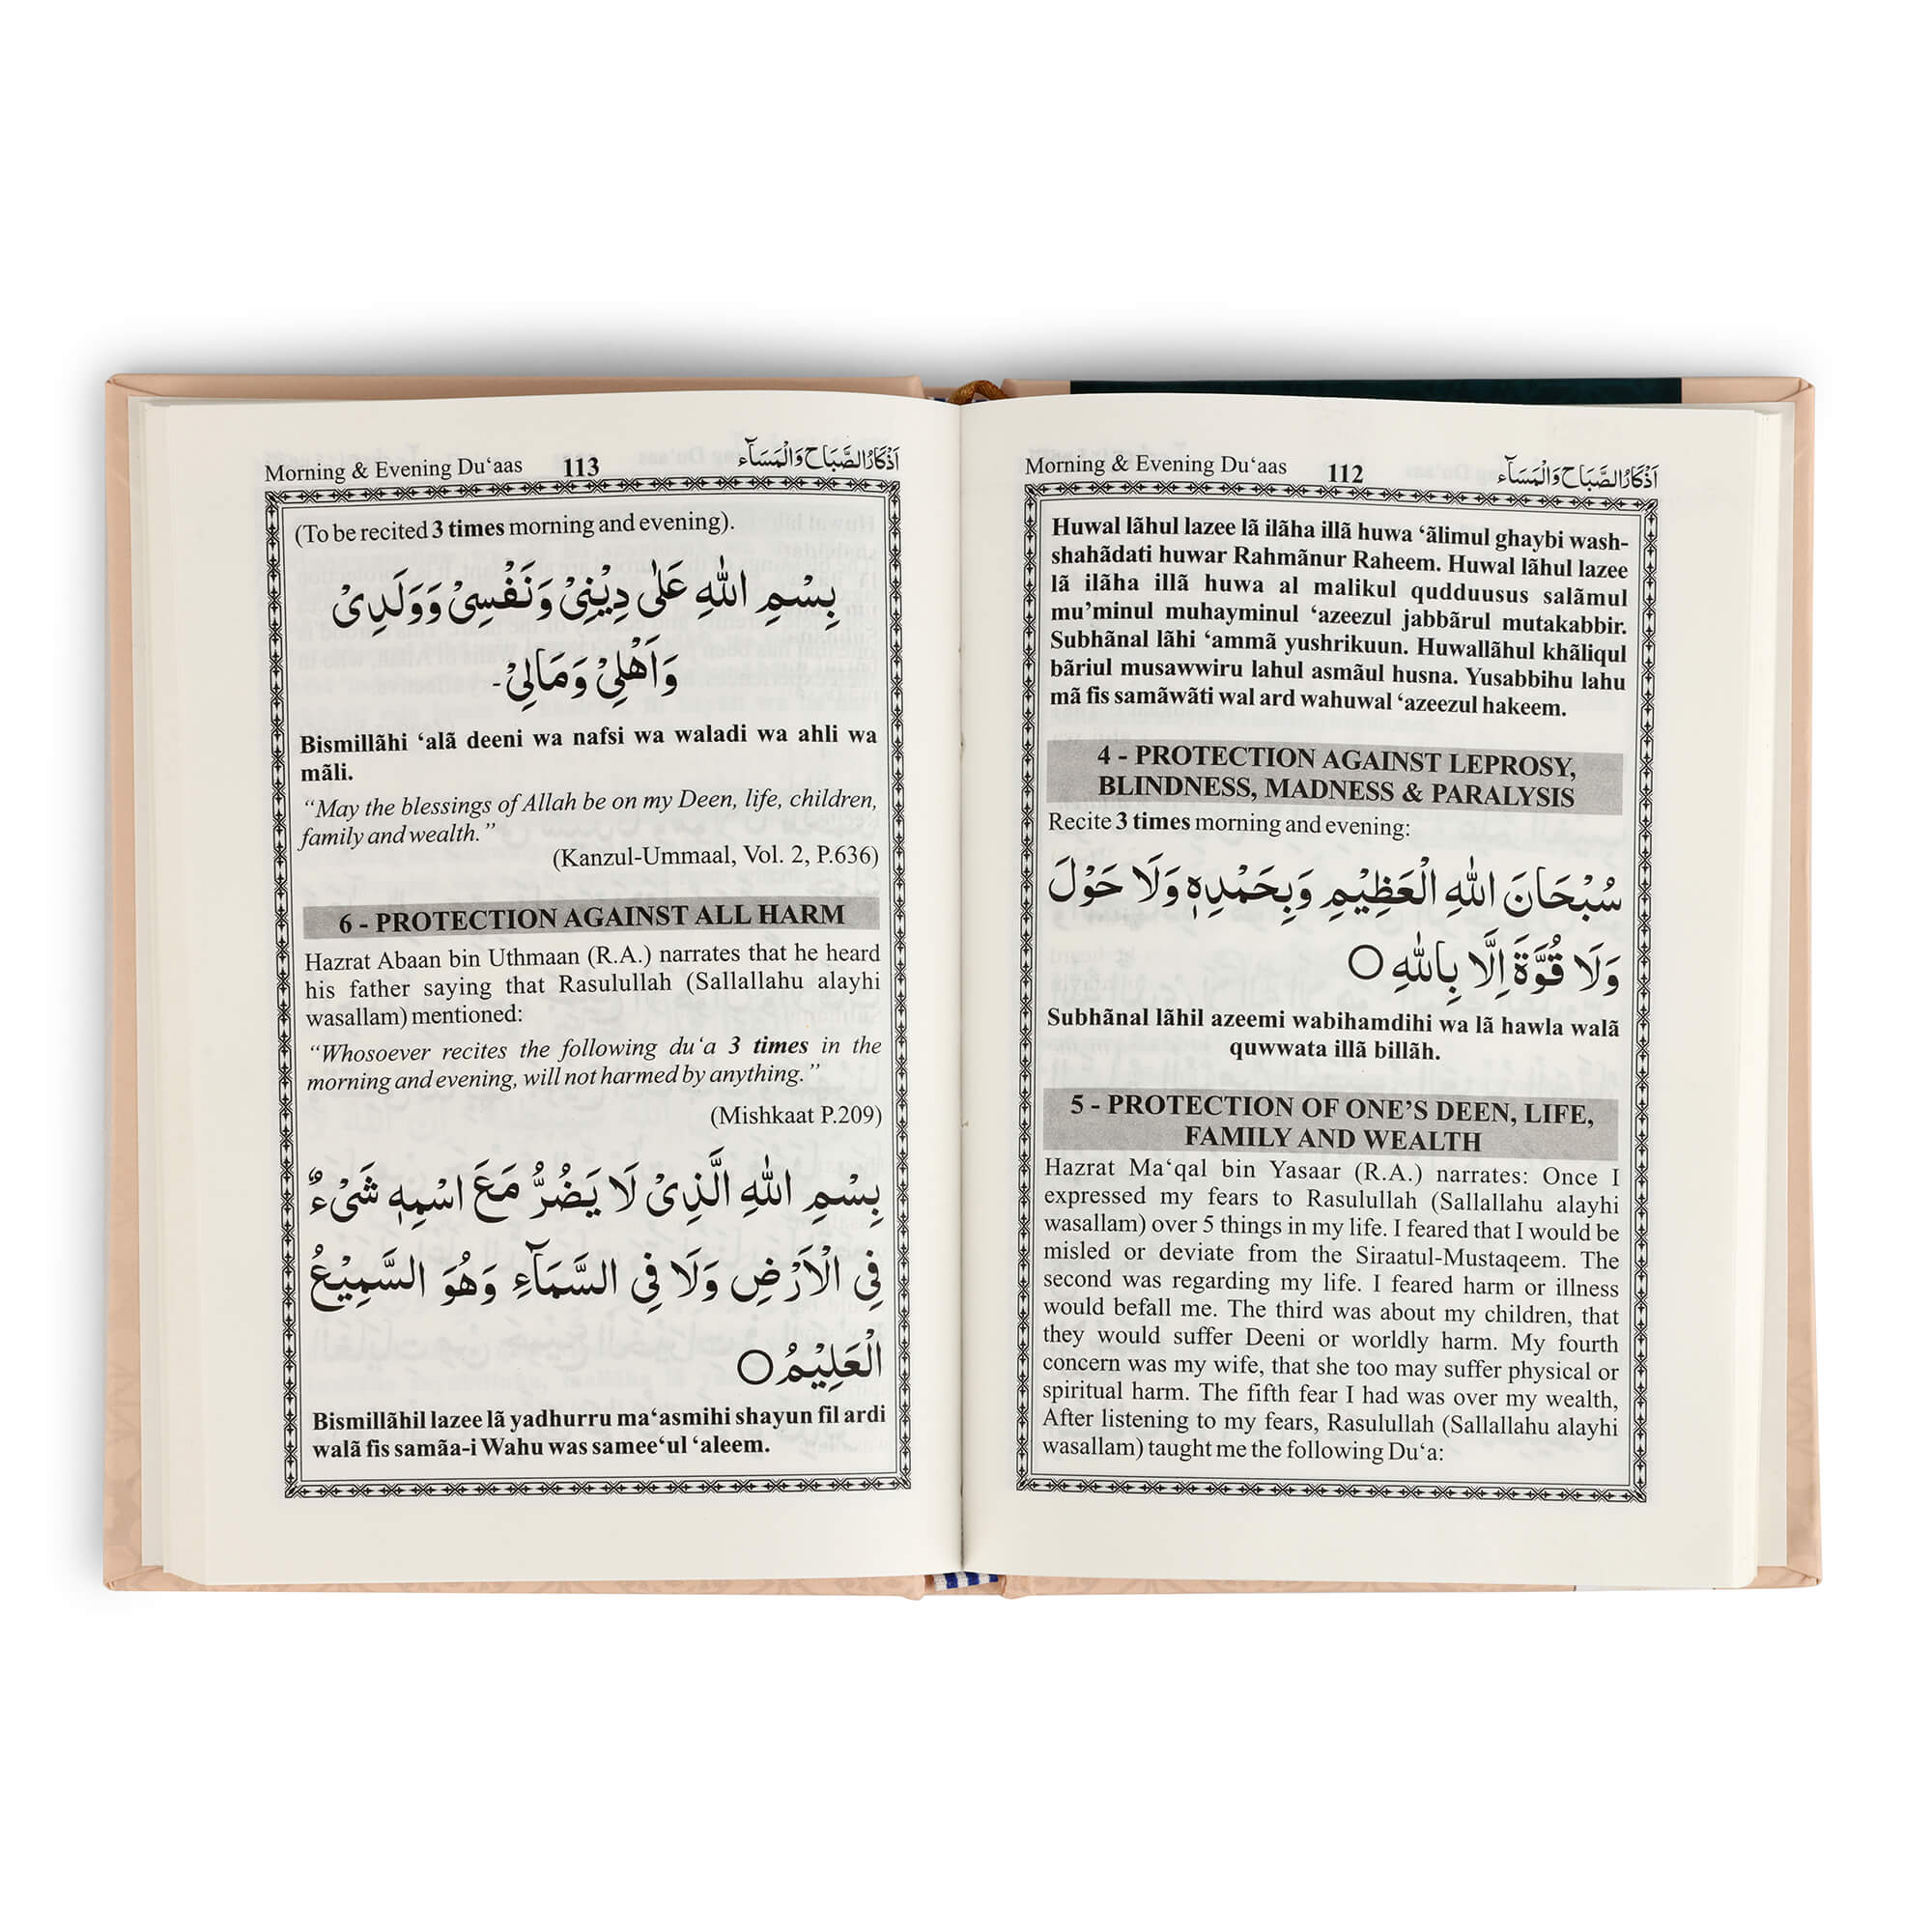 Morning & Evening Du‘aas 112 اَذْكَارُ الصَّبَاحِ وَالْمَسَآء
Huwal lãhul lazee lã ilãha illã huwa ‘ãlimul ghaybi wash-
shahãdati huwar Rahmãnur Raheem. Huwal lãhul lazee
lã ilãha illã huwa al malikul qudduusus salãmul
mu’minul muhayminul ‘azeezul jabbãrul mutakabbir.
Subhãnal lãhi ‘ammã yushrikuun. Huwallãhul khãliqul
bãriul musawwiru lahul asmãul husna. Yusabbihu lahu
mã fis samãwãti wal ard wahuwal ‘azeezul hakeem.
4 - PROTECTION AGAINST LEPROSY,
BLINDNESS, MADNESS & PARALYSIS
Recite 3 times morning and evening:
سُبْحَانَ اللهِ الْعَظِيْمِ وَبِحَمْدِهٖ وَلَا حَوْلَ
وَلَا قُوَّةَ اِلَّا بِاللهِ ○
Subhãnal lãhil azeemi wabihamdihi wa lã hawla walã
quwwata illã billãh.
5 - PROTECTION OF ONE’S DEEN, LIFE,
FAMILY AND WEALTH
Hazrat Ma‘qal bin Yasaar (R.A.) narrates: Once I
expressed my fears to Rasulullah (Sallallahu alayhi
wasallam) over 5 things in my life. I feared that I would be
misled or deviate from the Siraatul-Mustaqeem. The
second was regarding my life. I feared harm or illness
would befall me. The third was about my children, that
they would suffer Deeni or worldly harm. My fourth
concern was my wife, that she too may suffer physical or
spiritual harm. The fifth fear I had was over my wealth,
After listening to my fears, Rasulullah (Sallallahu alayhi
wasallam) taught me the following Du‘a:
Morning & Evening Du‘aas 113 اَذْكَارُ الصَّبَاحِ وَالْمَسَآء
(To be recited 3 times morning and evening).
بِسْمِ اللهِ عَلٰى دِيْنِىْ وَنَفْسِىْ وَوَلَدِىْ
وَاَهْلِىْ وَمَالِىْ۔
Bismillãhi ‘alã deeni wa nafsi wa waladi wa ahli wa
mãli.
“May the blessings of Allah be on my Deen, life, children,
family and wealth.”
(Kanzul-Ummaal, Vol. 2, P.636)
6 - PROTECTION AGAINST ALL HARM
Hazrat Abaan bin Uthmaan (R.A.) narrates that he heard
his father saying that Rasulullah (Sallallahu alayhi
wasallam) mentioned:
“Whosoever recites the following du‘a 3 times in the
morning and evening, will not harmed by anything.”
(Mishkaat P.209)
بِسْمِ اللهِ الَّذِىْ لَا يَضُرُّ مَعَ اسْمِهٖ شَىْءٌ
فِى الْاَرْضِ وَلَا فِى السَّمَآءِ وَهُوَ السَّمِيْعُ
الْعَلِيْمُ ○
Bismillãhil lazee lã yadhurru ma‘asmihi shayun fil ardi
walã fis samãa-i Wahu was samee‘ul ‘aleem.